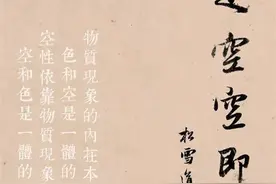 空空即
松雪道
物質現象的內在本
色和空是一體的
空性依靠物質現象
空和色是一體的